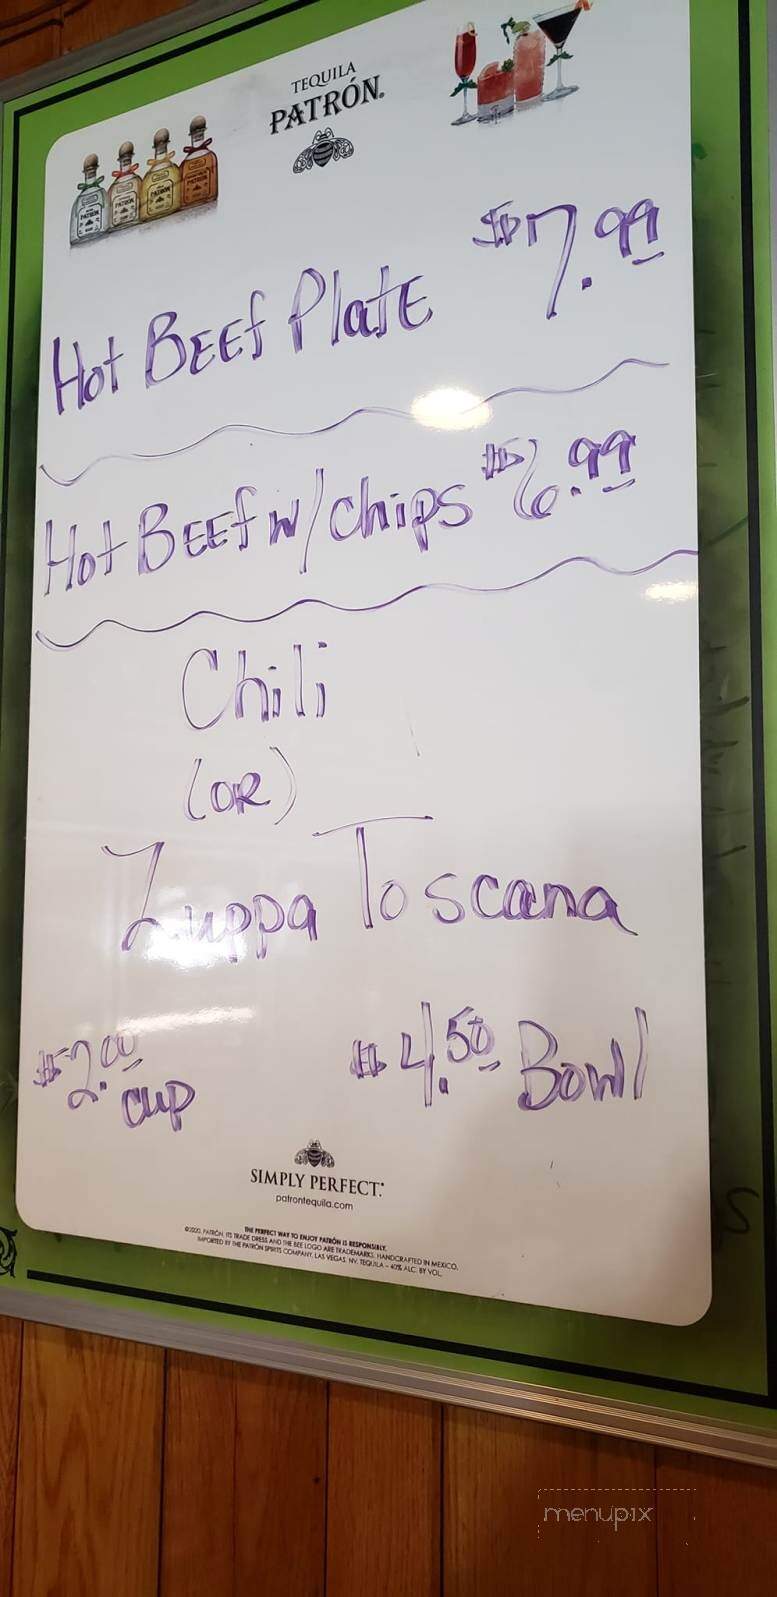 TEQUILA
PATRÓN
Hot BEEf PlatE $7.99
Hot BEEf w/chips $6.99
Chili
(OR)
Zuppa Toscana
$2.00 cup
$4.50 Bowl
SIMPLY PERFECT.
patrontequila.com
THE PERFECT WAY TO ENJOY PATRÓN IS RESPONSIBLY.
©2020. PATRÓN, ITS TRADE DRESS AND THE BEE LOGO ARE TRADEMARKS. HANDCRAFTED IN MEXICO.
IMPORTED BY THE PATRÓN SPIRITS COMPANY, LAS VEGAS, NV. TEQUILA – 40% ALC. BY VOL.
menupix